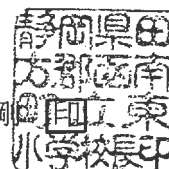 静岡県田
方郡函南
町立東
小学校長